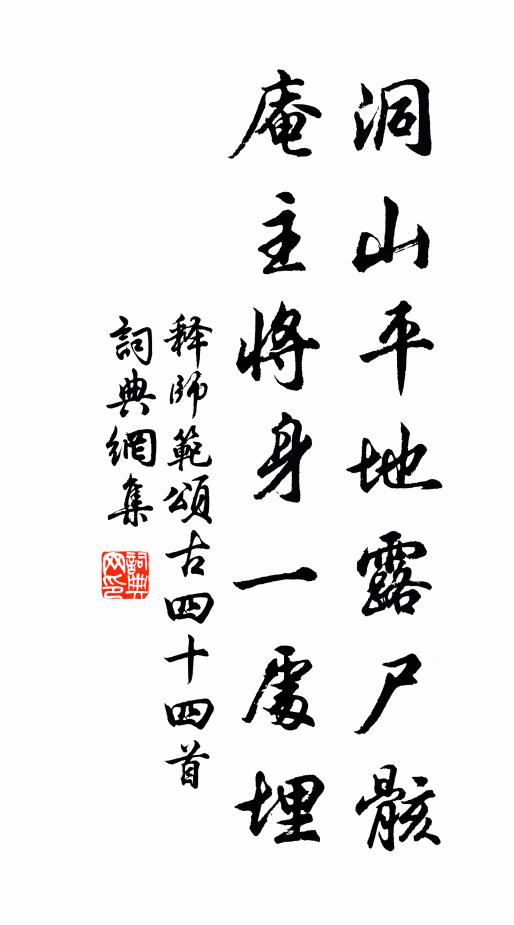 洞山平地露尸骸
庵主將身一處埋
释師範頌古四十四首
詞典網集
詞典网印